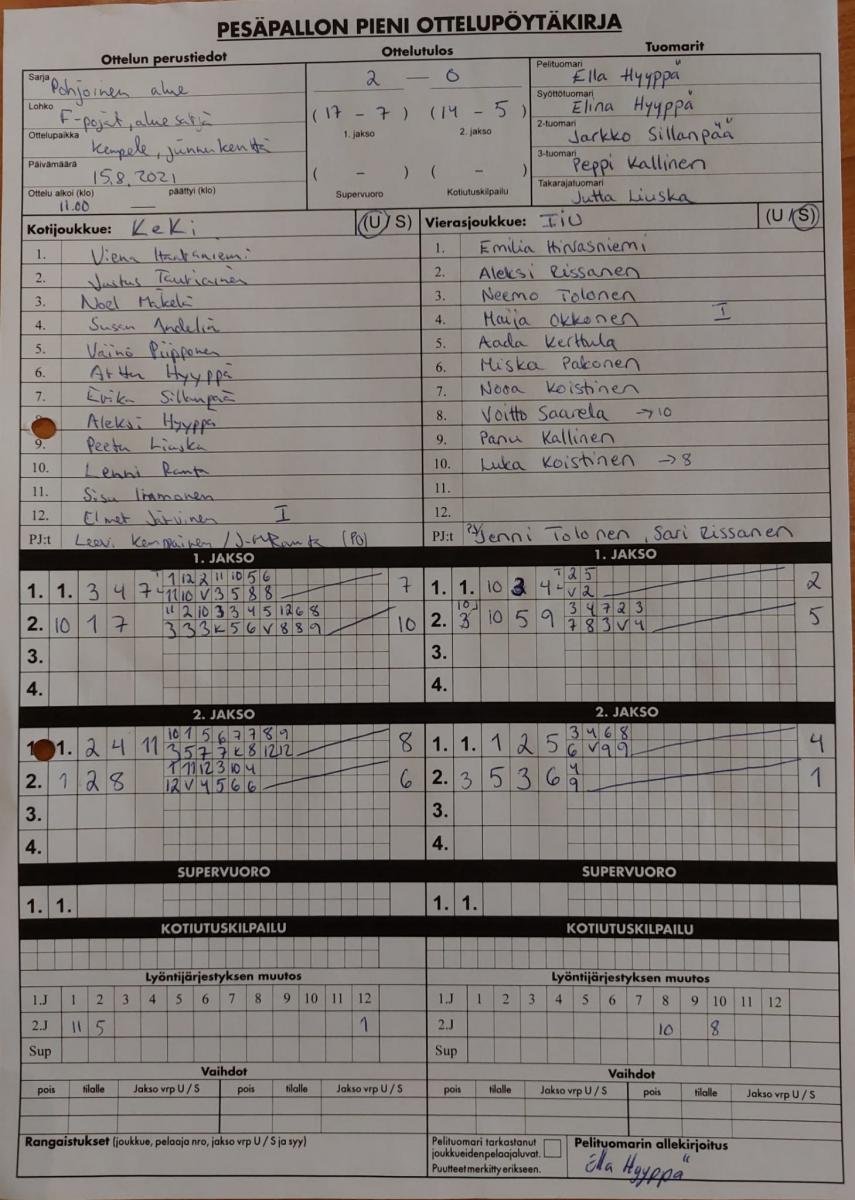 PESÄPALLON PIENI OTTELUPÖYTÄKIRJA
Ottelun perustiedot
Sarja Pohjoinen alue
Lohko F-pojat, aluesarja
Ottelupaikka Kempele, junnukenttä
Päivämäärä 15.8.2021
Ottelu alkoi (klo) päättyi (klo)
11.00 —
Ottelutulos
2 — 0
(17 - 7) (14 - 5)
1. jakso 2. jakso
( - ) ( - )
Supervuoro Kotiutuskilpailu
Tuomarit
Pelituomari Ella Hyyppä
Syöttötuomari Elina Hyyppä
2-tuomari Jarkko Sillanpää
3-tuomari Peppi Kallinen
Takarajatuomari Jutta Liuska
Kotijoukkue: KeKi (U / S)
1. Viena
2. Justus
3. Noel Mäkelä
4. Susan Andelin
5. Väinö Piipponen
6. Arttu Hyyppä
7. Eerika Sillanpää
Aleksi Hyyppä
9. Peetu Liuska
10. Lenni Ranta
11. Sisu Immonen
12. Elmet Järvinen I
PJ:t Leevi Kemppainen / J-M Ranta (PO)
Vierasjoukkue: IiU (U / S)
1. Emilia Hirvasniemi
2. Aleksi Rissanen
3. Neemo Tolonen
4. Maija Okkonen I
5. Aada Kerttula
6. Miska Pakonen
7. Nooa Koistinen
8. Voitto Saarela →10
9. Panu Kallinen
10. Luka Koistinen →8
11.
12.
PJ:t Jenni Tolonen, Sari Rissanen
1. JAKSO
1. 1. 3 4 7 1 12 2 11 10 5 6 7
11 10 V 3 5 8 8
2. 10 1 7 11 2 10 3 3 4 5 12 6 8 10
3 3 3 K 5 6 V 8 8 9
3.
4.
1. JAKSO
1. 1. 10 3 4 2 5 2
V 2
2. 3 10 5 9 3 4 7 2 3 5
7 8 3 V 4
3.
4.
2. JAKSO
1. 2 4 11 10 1 5 6 7 7 8 9 8
3 5 7 7 K 8 12 12
2. 1 2 8 1 11 12 3 10 4 6
12 V 4 5 6 6
3.
4.
2. JAKSO
1. 1. 1 2 5 3 4 6 8 4
6 V 9 9
2. 3 5 3 6 4 1
9
3.
4.
SUPERVUORO
1. 1.
SUPERVUORO
1. 1.
KOTIUTUSKILPAILU
KOTIUTUSKILPAILU
Lyöntijärjestyksen muutos
1.J 1 2 3 4 5 6 7 8 9 10 11 12
2.J 11 5 1
Sup
Lyöntijärjestyksen muutos
1.J 1 2 3 4 5 6 7 8 9 10 11 12
2.J 10 8
Sup
Vaihdot
pois tilalle Jakso vrp U / S pois tilalle Jakso vrp U / S
Vaihdot
pois tilalle Jakso vrp U / S pois tilalle Jakso vrp U / S
Rangaistukset (joukkue, pelaaja nro, jakso vrp U / S ja syy)
Pelituomari tarkastanut
joukkueiden pelaajaluvat.
Puutteet merkitty erikseen.
Pelituomarin allekirjoitus
Ella Hyyppä